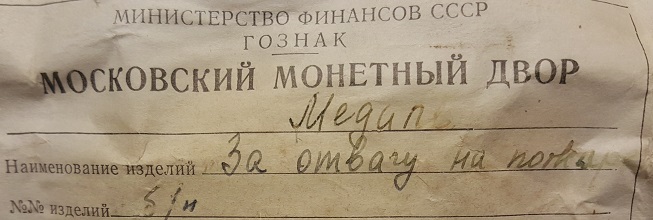 МИНИСТЕРСТВО ФИНАНСОВ СССР
ГОЗНАК
МОСКОВСКИЙ МОНЕТНЫЙ ДВОР
Медаль
Наименование изделий За отвагу на пожар
№№ изделий б/н